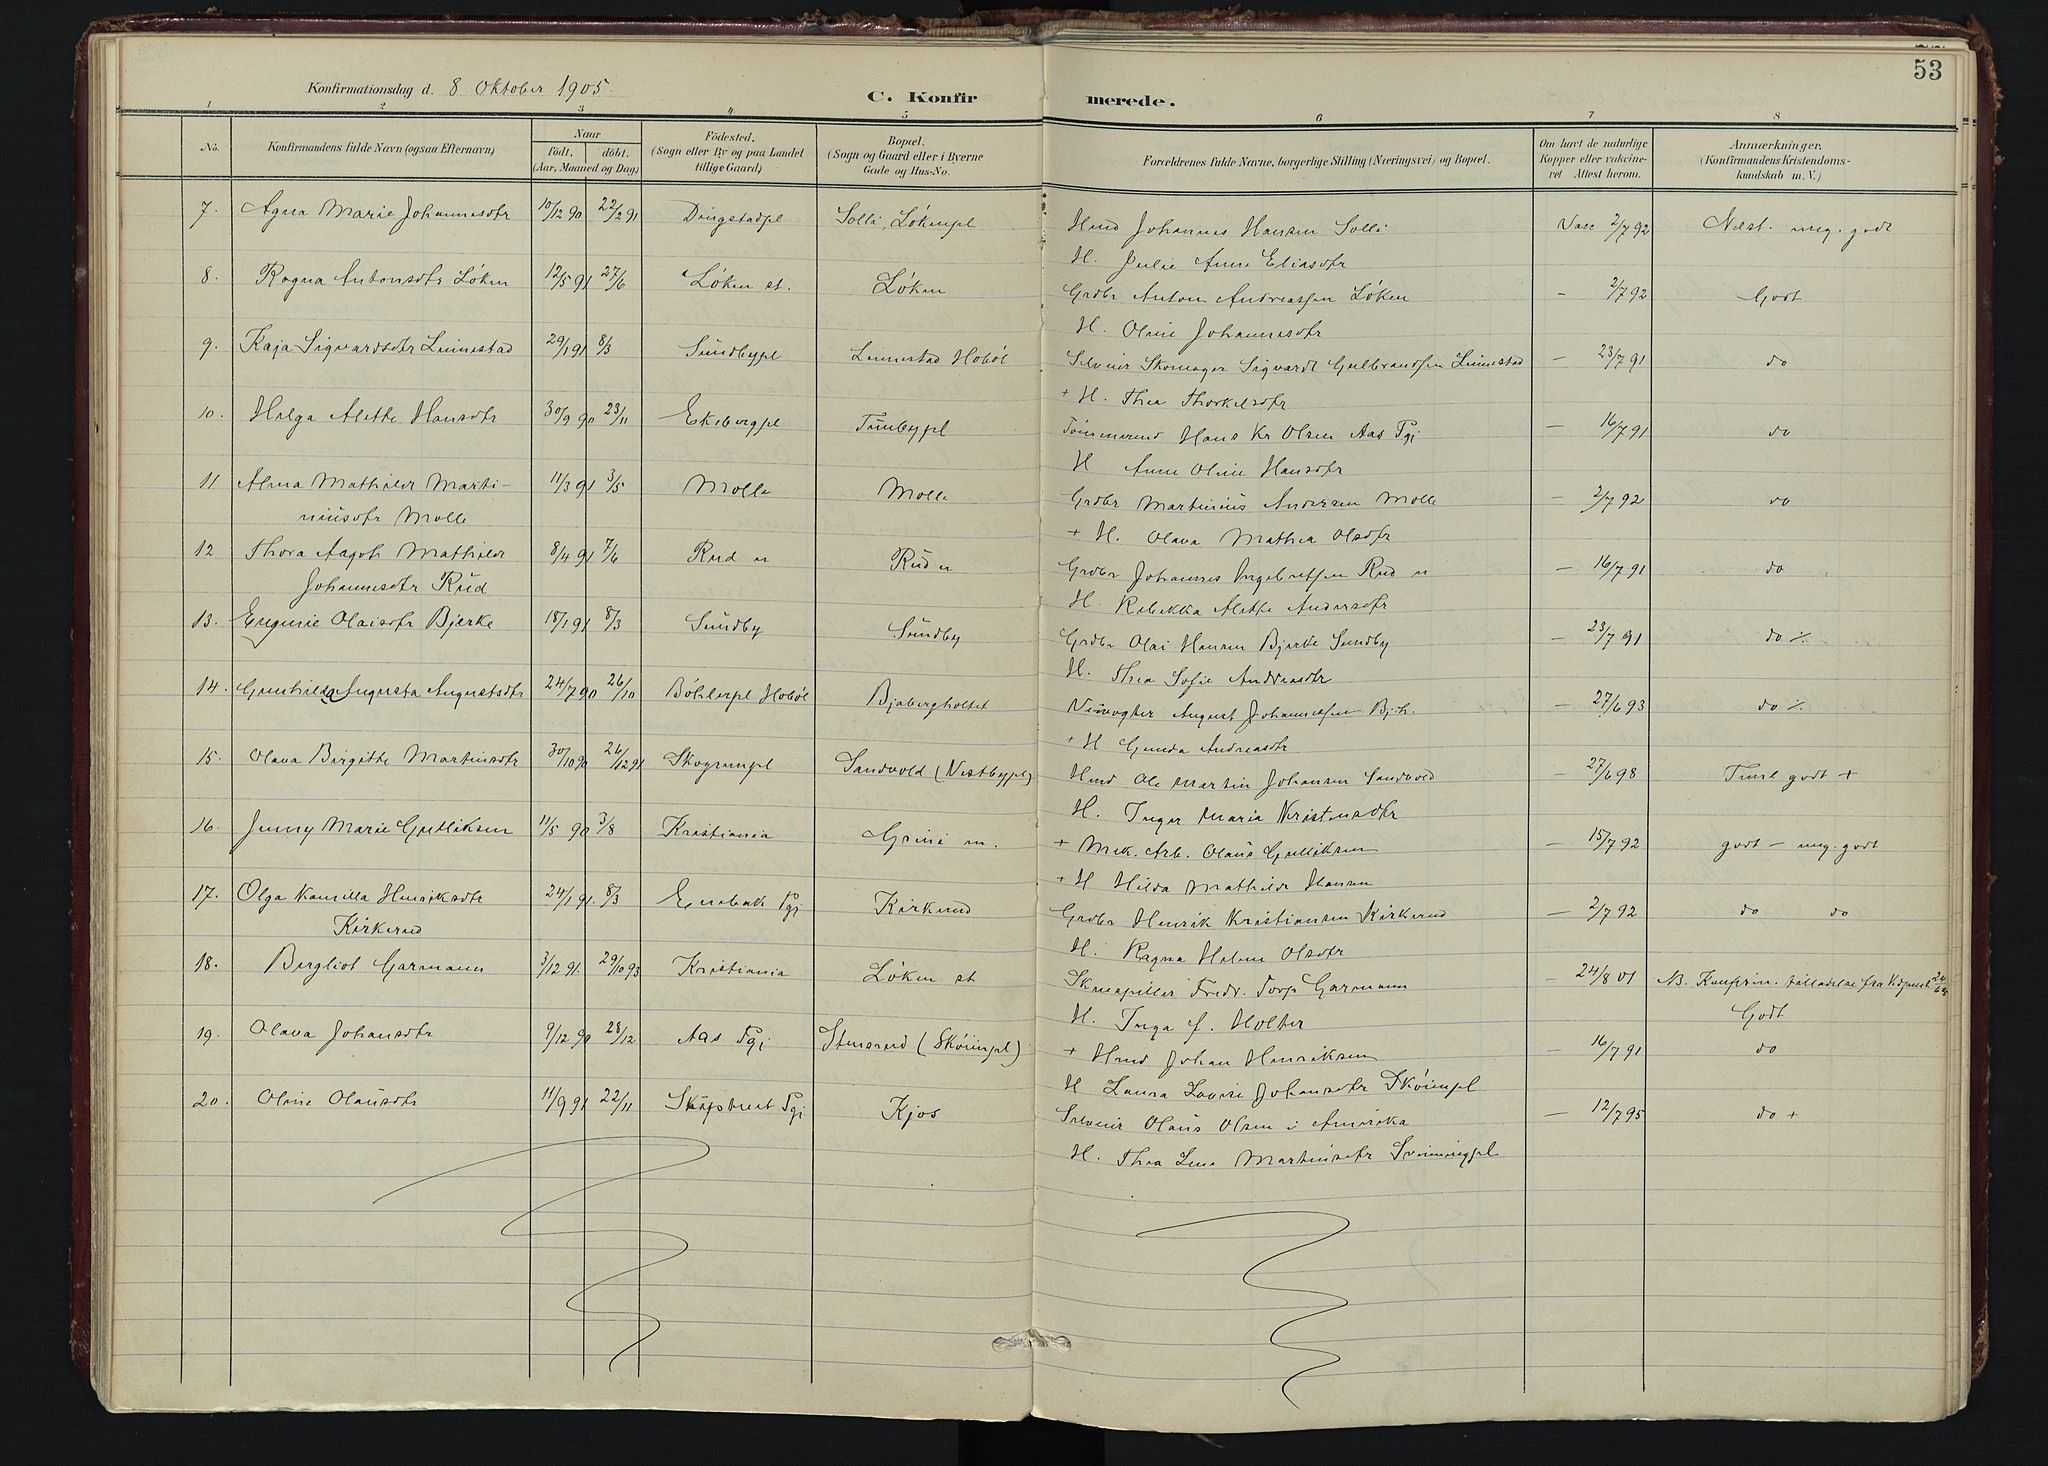 53
Konfirmationsdag d. 8 Oktober 1905.
C. Konfirmerede.
1 2 3 4 5 6 7 8
No. Konfirmandens fulde Navn (ogsaa Efternavn) Naar Födt. döbt. (Aar, Maaned og Dag) Födested. (Sogn eller By og paa Landet tillige Gaard) Bopæl. (Sogn og Gaard eller i Byerne Gade og Hus-No. Forældrenes fulde Navne, borgerlige Stilling (Næringsvei) og Bopæl. Om havt de naturlige Kopper eller vakcineret Attest herom. Anmærkninger. (Konfirmandens Kristendomskundskab m. V.)
7. Agna Marie Johannesdtr 10/12 90 22/2 91 Dingstadpl Solli, Løkenpl Hmd Johannes Hansen Solli Vacc 2/7 92 Næst. meg. godt
H. Julie Anne Eliasdtr
8. Ragna Antonsdtr Løken 12/5 91 27/6 Løken st. Løken Grdbr Anton Andreassen Løken — 2/7 92 Godt
H. Oline Johannesdtr
9. Kaja Sigvardsdtr Linnestad 29/1 91 8/3 Sundbypl Linnestad Hobøl Selveier Skomager Sigvardt Gulbrandsen Linnestad — 23/7 91 do
+ H. Thea Thorkelsdtr
10. Helga Alette Hansdtr 30/9 90 23/11 Ekebergpl Tunbypl Tømmermd Hans Kr Olsen Aas Pgj — 16/7 91 do
H Anne Oline Hansdtr
11 Alma Mathilde Marti- 11/3 91 3/5 Molle Molle Grdbr Martinius Andersen Molle — 2/7 92 do
niusdtr Molle
+ H. Olava Mathea Olsdtr
12 Thora Aagot Mathilde 8/4 91 7/6 Rud n Rud n Grdbr Johannes Ingebretsen Rud n — 16/7 91 do
Johannesdtr Rud
H. Rebekka Alette Andersdtr
13. Eugenie Olaisdtr Bjerke 18/1 91 8/3 Sundby Sundby Grdbr Olai Hansen Bjerke Sundby — 23/7 91 do ⁒
H. Thea Sofie Andreasdtr
14. Gunhilda Augusta Augustsdtr 24/7 90 26/10 Böhlerpl Hobøl Bjebergholtet Veivogter August Johannessen Bjh. — 27/6 93 do ⁒
+ H Gunda Andreasdtr
15. Olava Birgitte Martinsdtr 30/10 90 26/12 91 Skogrunpl Sandvold (Nestbypl) Hmd Ole Martin Johansen Sandvold — 27/6 98 Teml godt +
H. Inger Maria Kristensdtr
16. Jenny Marie Gulliksen 11/5 90 3/8 Kristiania Grini m. + Mek. Arb. Olaus Gulliksen — 15/7 92 godt — meg. godt
+ H Hilda Mathilde Hansen
17. Olga Kamilla Henriksdtr 24/1 91. 8/3 Enebak Pgj Kirkerud Grdbr Henrik Kristiansen Kirkerud — 2/7 92 do do
Kirkerud
H. Ragna Helene Olsdtr
18. Bergliot Garmann 3/12 91. 29/10 93 Kristiania Løken st Skuespiller Fredr. Torp Garmann — 24/8 01 NB. Konfirm. tilladelse fra Kdpmt
H. Inga f. Holter Godt
19. Olava Johansdtr 9/12 90 28/12 Aas Pgj Stensrud (Skøienpl) + Hmd Johan Henriksen — 16/7 91 do
H Laura Lovise Johansdtr Skøienpl
20. Oline Olausdtr 11/9 91 22/11 Skiptvet Pgj Kjos Selveier Olaus Olsen i Amerika — 12/7 95 do +
H. Thea Line Martinsdtr Svenningpl